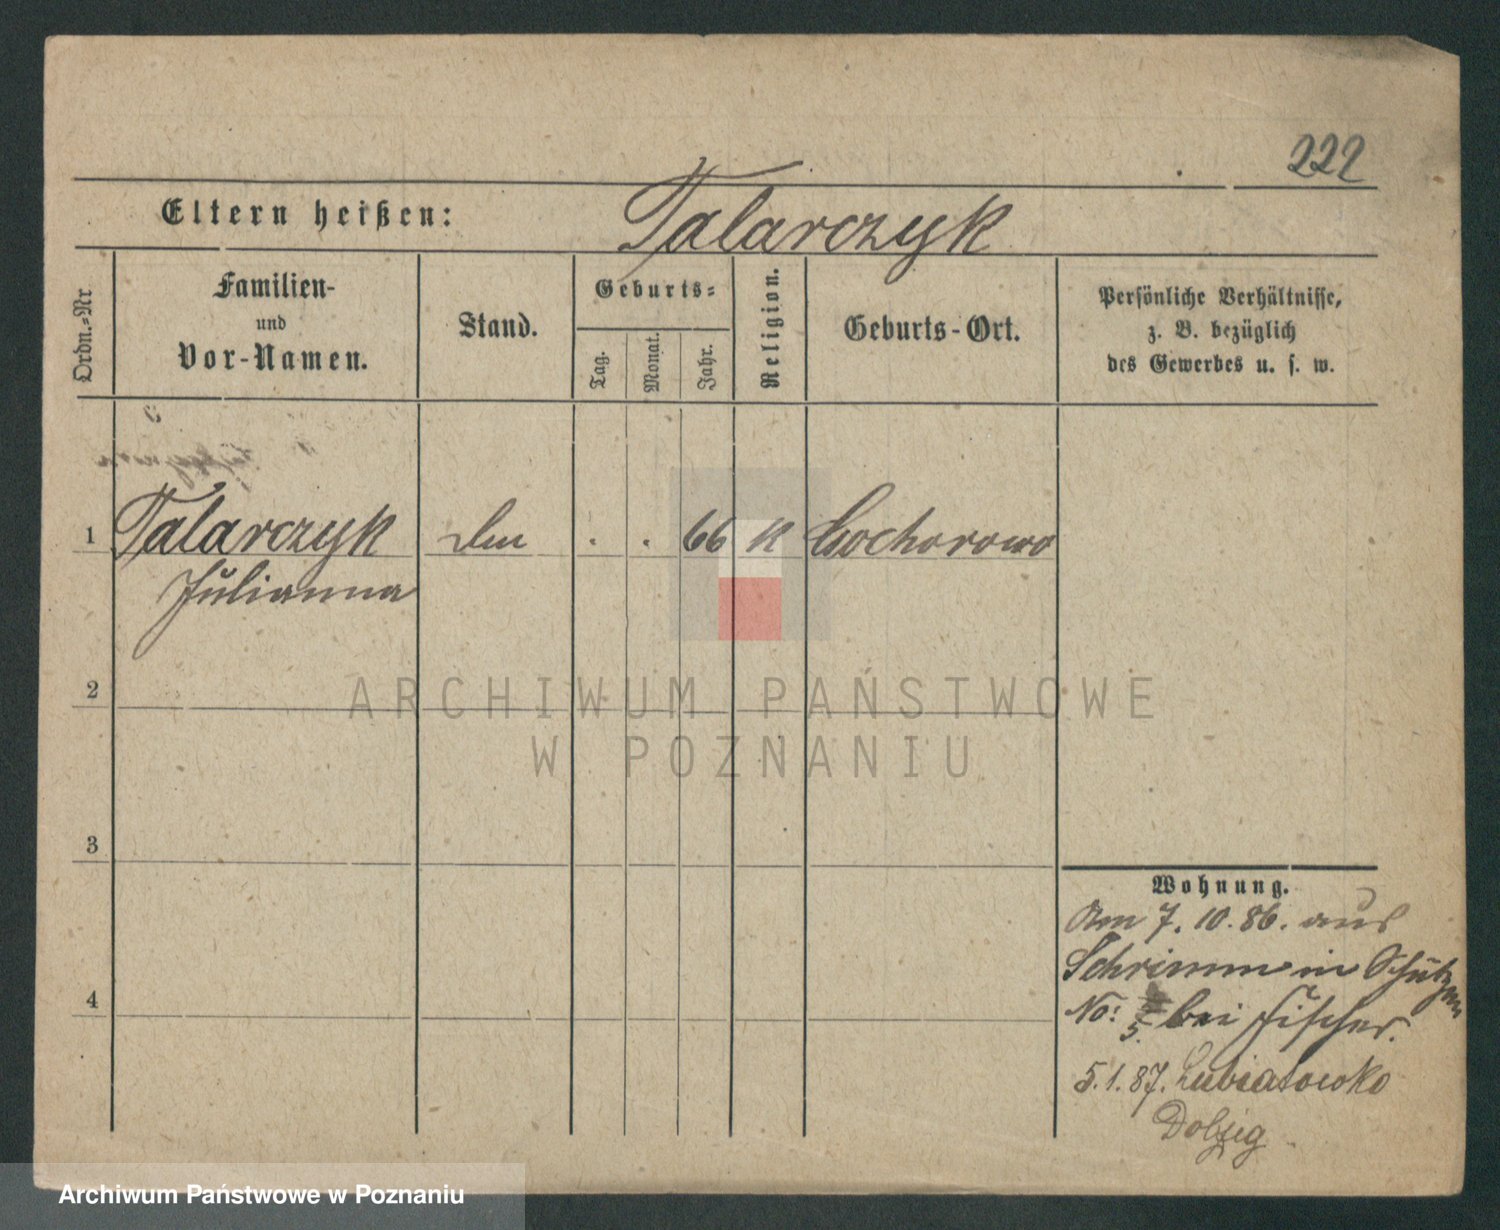 222
Eltern heißen: Talarczyk
Ordn.-Nr
Familien-
und
Vor-Namen.
Stand.
Geburts-
Tag.
Monat.
Jahr.
Religion.
Geburts-Ort.
Persönliche Verhältnisse,
z. B. bezüglich
des Gewerbes u. s. w.
1 Talarczyk . . 66 K Gochorowo
Julianna
2
3
4
Wohnung.
Am 7. 10. 86. aus
Schrimm in Schützen
No: 5. bei Fischer.
5.1.87. Lubiatowko
Dolzig
ARCHIWUM PAŃSTWOWE
W POZNANIU
Archiwum Państwowe w Poznaniu